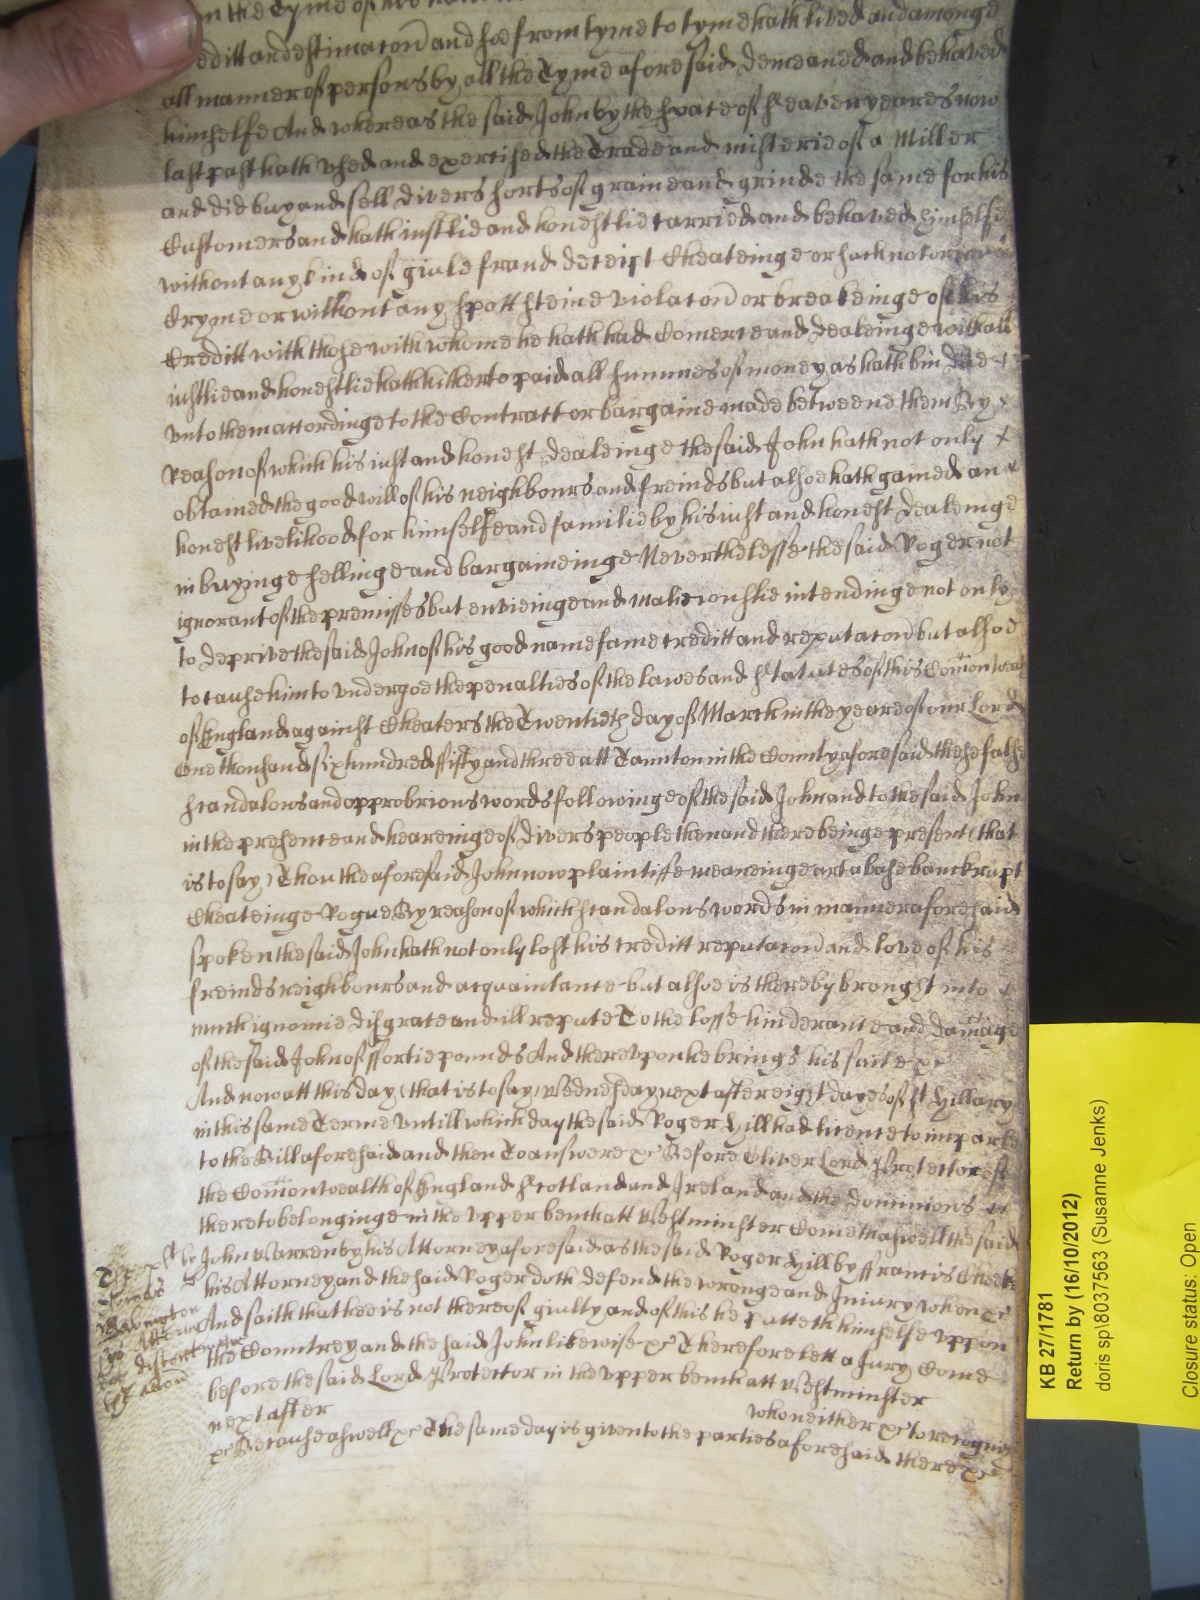 in the Tyme of his
creditt and estimacon and hee from tyme to tyme hath lived and amonge
all manner of persons by all the Tyme aforesaid demeaned and behaved
himselfe And whereas the said John by the space of seaven yeares now
last past hath used and exercised the Trade and misterie of a Miller
and did buy and sell divers sorts of graine and grinde the same for his
Customers and hath iustlie and honestlie carried and behaved himselfe
without any kind of guile fraud deceipt Cheateinge or such notorious
Cryme or without any spott steine violacon or breakeinge of his
Creditt with those with whome he hath had Comerce and dealeinge withall
iustlie and honestlie hath hitherto paid all summes of money as hath bin due
unto them accordinge to the Contract or bargaine made betweene them By
Reason of which his iust and honest dealeinge the said John hath not only
obtained the good will of his neighbours and freinds but alsoe hath gained an
honest livelihood for himselfe and familie by his iust and honest dealeinge
in buyinge sellinge and bargaineinge Neverthelesse the said Roger not
ignorant of the premisses but envieinge and maliciouslie intendinge not only
to deprive the said John of his good name fame creditt and reputacon but alsoe
to cause him to undergoe the penalties of the lawes and statutes of this Comonwealth
of England against Cheaters the Twentieth day of March in the yeare of our Lord
One thousand six hundred fifty and three att Taunton in the County aforesaid these false
scandalows and opprobrious words followinge of the said John and to the said John
in the presence and heareinge of divers people then and there beinge present (that
is to say) Thou the aforesaid John now plaintiffe meaneinge art a base banckrupt
Cheateinge Rogue By reason of which scandalous words in manner aforesaid
spoken the said John hath not only lost his creditt reputacon and love of his
freinds neighbours and acquaintance but alsoe is thereby brought into
much ignomie disgrace and ill repute To the losse hinderance and damage
of the said John of ffortie pounds And thereupon he brings his suite &c
And now att this day (that is to say) Wednesday next after eight dayes of St Hillary
in this same Terme untill which day the said Roger Hill had licence to imparle
to the Bill aforesaid and then To answere &c Before Oliver Lord Protector of
the Comonwealth of England Scotland and Ireland and the dominions
thereto belonginge in the upper bench att Westminster Cometh aswell the said
John Warren by his Attorney aforesaid as the said Roger Hill by ffrancis Cheeke
his Attorney and the said Roger doth defend the wronge and Iniury when &c
And saith that hee is not thereof guilty and of this he putteth himselfe uppon
the Countrey and the said John likewise &c Therefore lett a Jury Come
before the said Lord Protector in the upper bench att Westminster
next after who neither &c to recognize
&c Because aswell &c The same day is given to the parties aforesaid there &c
KB 27/1781
Return by (16/10/2012)
doris sp\8037563 (Susanne Jenks)
Closure status: Open